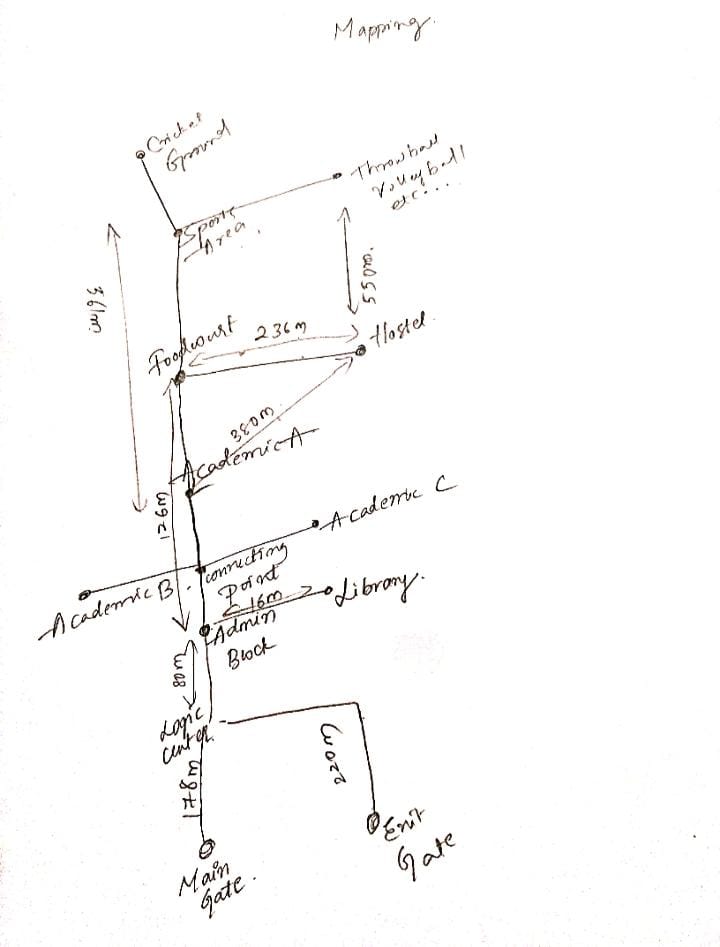 Mapping.
Cricket
Ground
Throwball
Volleyball
etc....
Sports
Area.
361m
550m.
Foodcourt
236m
Hostel.
380m
Academic A
176m
Academic C
Connecting
Point
Academic B.
16m
Library.
Admin
Block
80m
Logic
center.
178m
220m
Exit
Gate
Main
Gate.